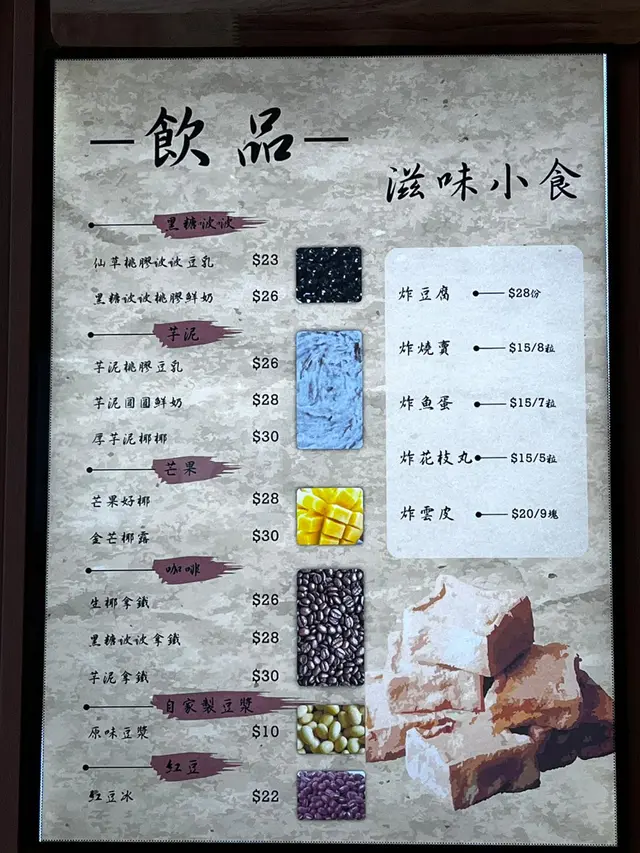 飲品
黑糖波波
仙草桃膠波波豆乳 $23
黑糖波波桃膠鮮奶 $26
芋泥
芋泥桃膠豆乳 $26
芋泥圓圓鮮奶 $28
厚芋泥椰椰 $30
芒果
芒果好椰 $28
金芒椰露 $30
咖啡
生椰拿鐵 $26
黑糖波波拿鐵 $28
芋泥拿鐵 $30
自家製豆漿
原味豆漿 $10
紅豆
紅豆冰 $22
滋味小食
炸豆腐 $28份
炸燒賣 $15/8粒
炸魚蛋 $15/7粒
炸花枝丸 $15/5粒
炸雲皮 $20/9塊